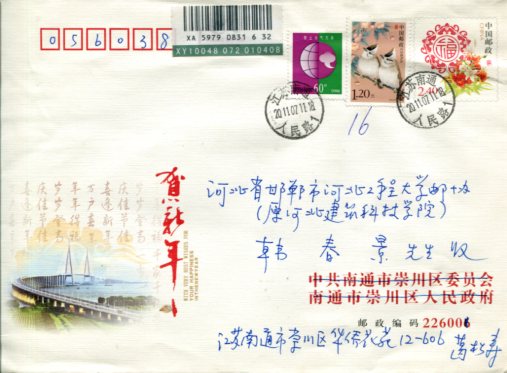 XA 5979 0831 6 32
XY10048 072 010408
056038
60分
中国邮政
1.20元
中国邮政
2.40元
江苏南通
2011.07.11.18
人民路1
江苏南通
2011.07.11.18
人民路1
16
贺新年
WISH YOU HAPPINESS
IN THE NEW YEAR
河北省邯郸市河北工程大学邮协
(原河北建筑科技学院)
韩春景 先生 收
中共南通市崇川区委员会
南通市崇川区人民政府
邮政编码 226006
江苏南通市崇川区华侨花苑12-606 葛松寿